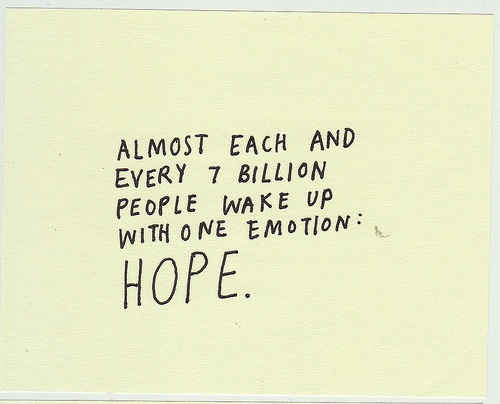 ALMOST EACH AND
EVERY 7 BILLION
PEOPLE WAKE UP
WITH ONE EMOTION:
HOPE.